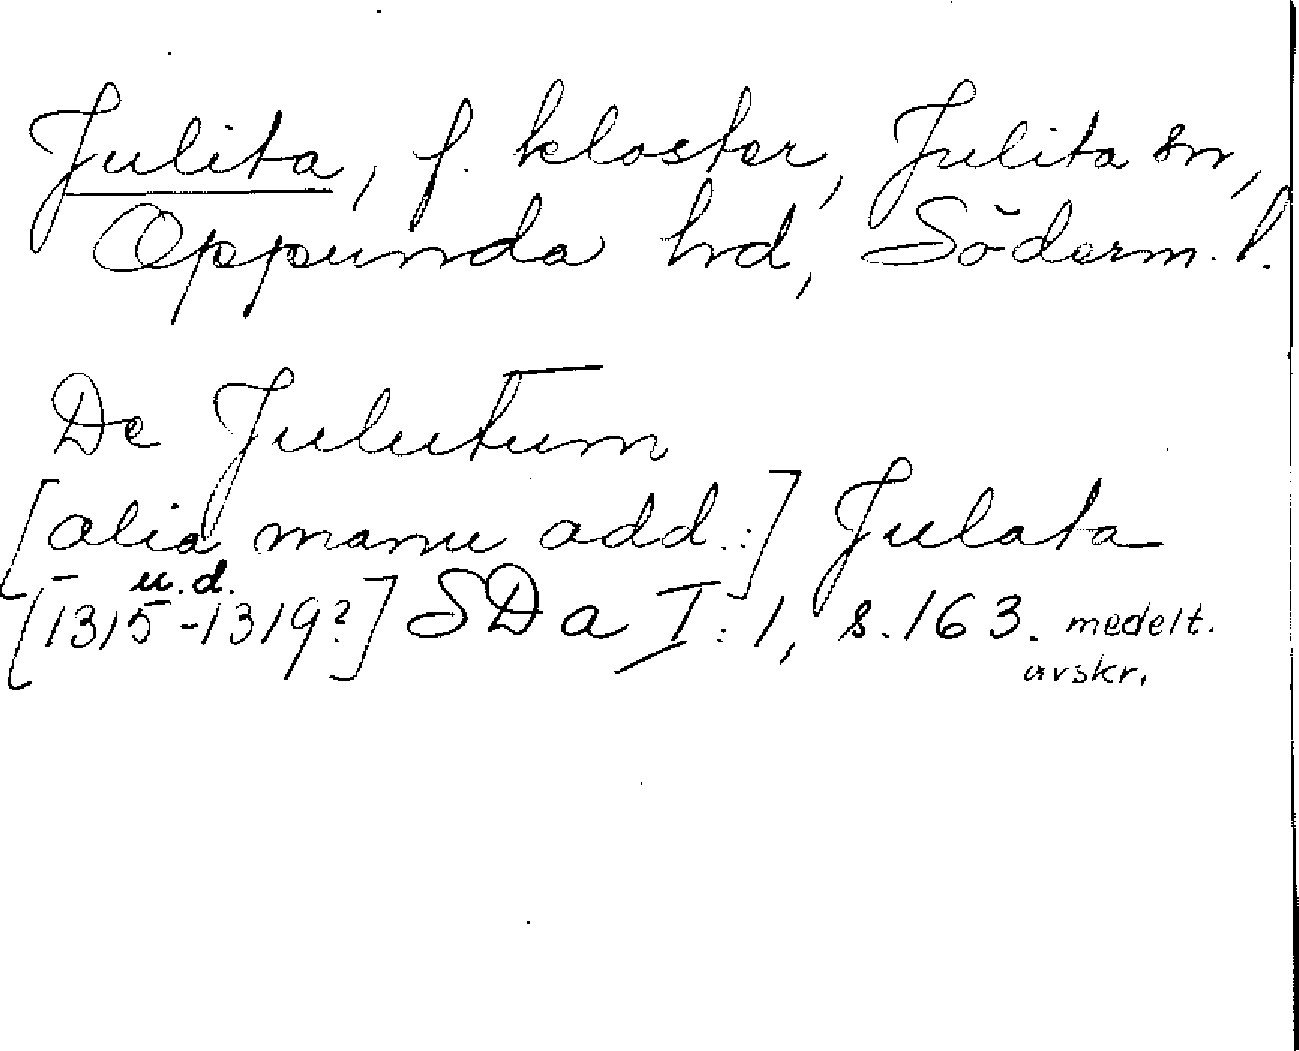 Julita, f. kloster, Julita sn,
Oppunda hd, Söderm. l.
De Julutum
[alia manu add.:] Julata
u.d.
[1315-1319?] SDa I:1, s.163. medelt.
avskr.